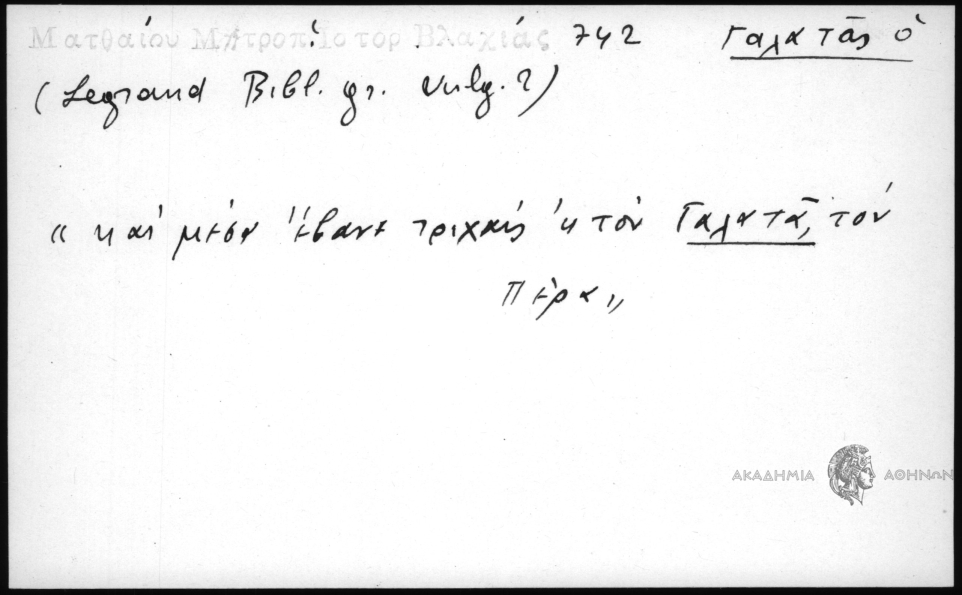 Ματθαίου Μητροπ. Ἱστορ Βλαχίας 742 Γαλατᾶς ὁ
(Legrand Bibl. gr. Vulg. 2)
« καὶ μέσα ἔβανε τριχαὶς 'ς τὸν Γαλατᾶ, τὸν
Πέρα »
ΑΚΑΔΗΜΙΑ ΑΘΗΝΩΝ